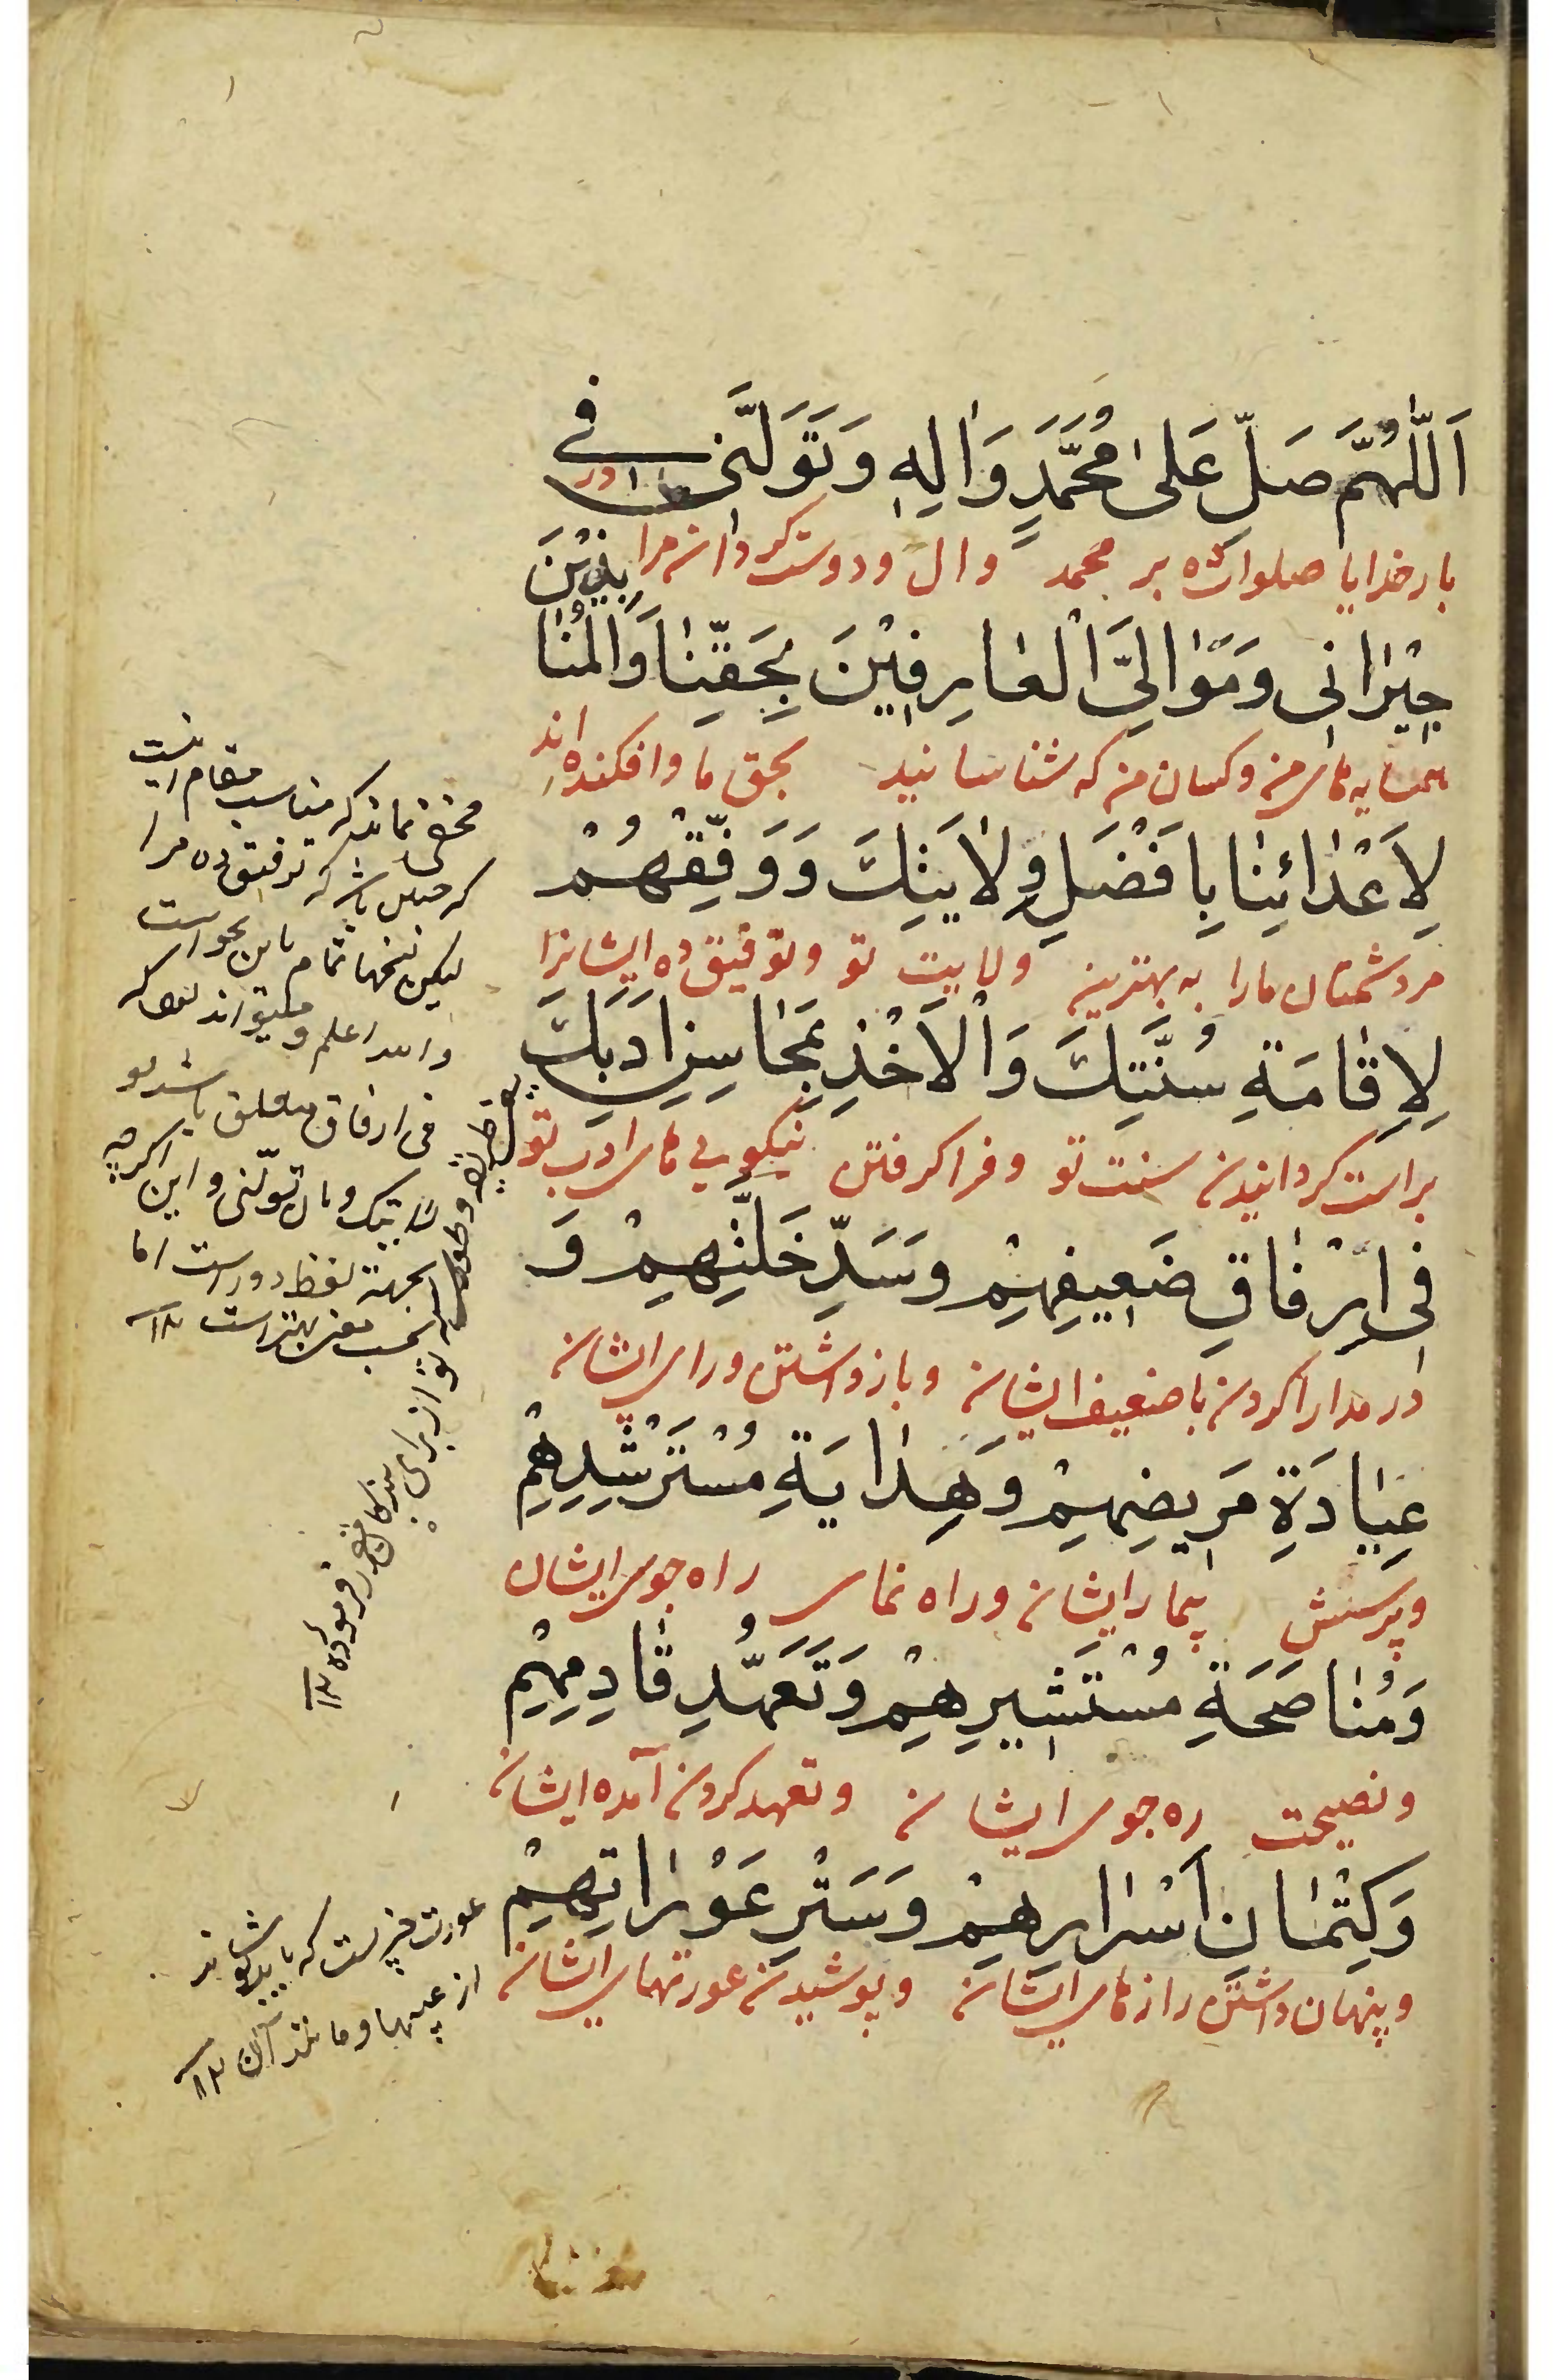 اَللّٰهُمَّ صَلِّ عَلىٰ مُحَمَّدٍ وَاٰلِهِ وَتَوَلَّنى فى
بارخدایا صلوات ده بر محمد وال ودوست کردان مرا در
جِيْرٰانى وَمَوٰالِىَّ الْعٰارِفِيْنَ بِحَقِّنٰا وَالْمُنٰابِذِيْنَ
همسایه های من وکسان من که شناسانید بحق ما وافکنده اند
لِاَعْدٰائِنٰا بِاَفْضَلِ وِلٰايَتِكَ وَوَفِّقْهُمْ
مر دشمنان مارا به بهترین ولایت تو وتوفیق ده ایشانرا
لِاِقٰامَةِ سُنَّتِكَ وَالْاَخْذِ بِمَحٰاسِنِ اَدَبِكَ
براست کردانیدن سنت تو وفرا کرفتن نیکویی های ادب تو
فى اِرْفٰاقِ ضَعِيفِهِمْ وَسَدِّ خَلَّتِهِمْ وَ
در مدارا کردن با ضعیف ایشان وبازداشتن ورای ایشان
عِيٰادَةِ مَرِيضِهِمْ وَهِدٰايَةِ مُسْتَرْشِدِهِمْ
وپرسش بیمار ایشان وراه نمای راه جوی ایشان
وَمُنٰاصَحَةِ مُسْتَشِيرِهِمْ وَتَعَهُّدِ قٰادِمِهِمْ
ونصیحت ره جوی ایشان وتعهد کردن آمده ایشان
وَكِتْمٰانِ اَسْرٰارِهِمْ وَسَتْرِ عَوْرٰاتِهِمْ
وپنهان داشتن رازهای ایشان وپوشیدن عورتهای ایشان
مخفی نماند که مناسب مقام اینست
که چنین باشد که توفیق ده مرا
لیکن نسخها تمام باین نحو است
والله اعلم ومیتواند بود که
فی ارفاق متعلق باشد بو
لایتک وبان تولنی واین اکرچه
بجهة لفظ دور است اما
بحسب معنی بهتر است ۱۲
تو از برای بندکان مقرر فرموده ۱۲
عورت چیزیست که باید پوشانند
از عیبها ومانند آن ۱۲